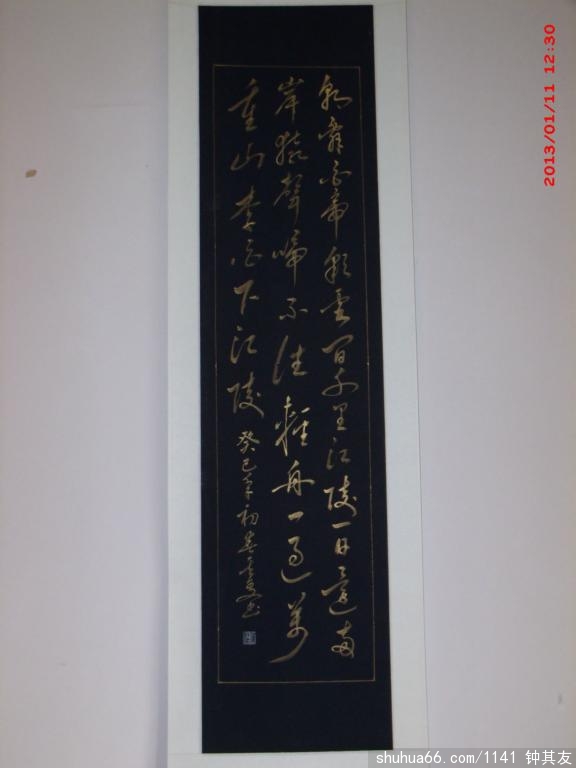 朝辭白帝彩雲間千里江陵一日還兩
岸猿聲啼不住輕舟一過萬
重山李白下江陵 癸巳年初春其友书
2013/01/11 12:30
shuhua66.com/1141 钟其友